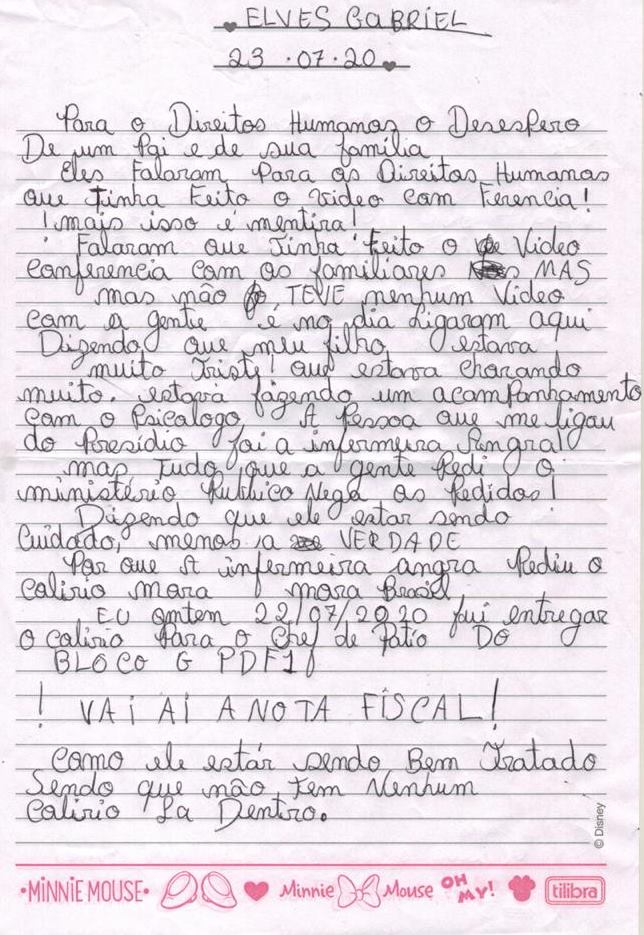 ELVES GABRIEL
23 .07.20
Para o Direitos Humanos o Desespero
De um Pai e de sua família
Eles Falaram Para os Direitos Humanos
que Tinha Feito o Video com Ferencia!
! mais isso é mentira!
Falaram que Tinha Feito o Video
conferencia com os familiares MAS
mas não TEVE nenhum Video
com a gente é no dia Ligaram aqui
Dizendo que meu filho estava
muito Triste! que estava chorando
muito. estava fazendo um acompanhamento
com o Psicologo A Pessoa que me ligou
do Presídio foi a infermeira
mas Tudo que a gente Pedi O
ministério Publico Nega os Pedidos!
Dizendo que ele estar sendo
Cuidado, menos a VERDADE
Por que A infermeira angra Pediu o
colirio mora mora Brasil
EU ontem 22/07/2020 fui entregar
o colirio Para o Chef de Patio DO
BLOCO G PDF1
! VAI AI A NOTA FISCAL!
Como ele estár sendo Bem Tratado
Sendo que não Tem Nenhum
Colirio La Dentro.
© Disney
•MINNIE MOUSE• Minnie Mouse OH MY! tilibra